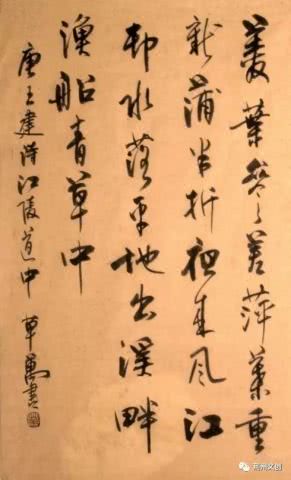 菱葉参差萍葉重
新蒲半折夜来風江
邨水落平地出溪畔
漁船青草中
唐王建詩江陵道中 草萬書
荆州文创